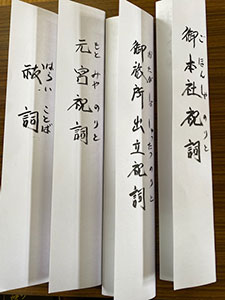 御本社祝詞
ごほんしゃのりと
御旅所出立祝詞
おたびしょしゅったつのりと
元宮祝詞
もとみやのりと
祓詞
はらいことば